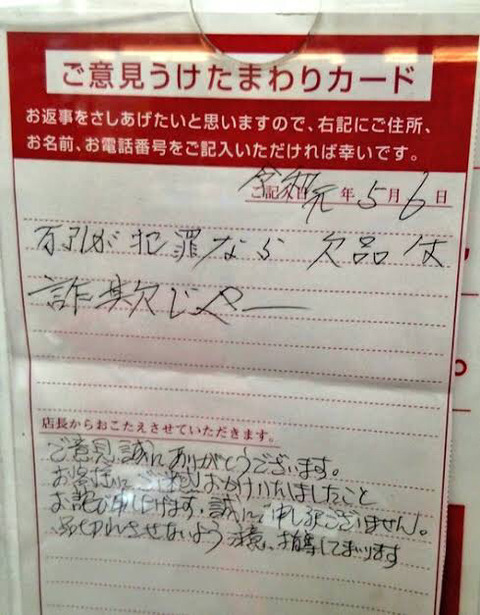 ご意見うけたまわりカード
お返事をさしあげたいと思いますので、右記にご住所、
お名前、お電話番号をご記入いただければ幸いです。
ご記入日 令和元年5月6日
万引が犯罪なら 欠品は
詐欺じゃー
店長からおこたえさせていただきます。
ご意見誠にありがとうございます。
お客様にご迷惑おかけいたしましたこと
お詫び申し上げます。誠に申し訳ございません。
品切れさせないよう注意、指導してまいります